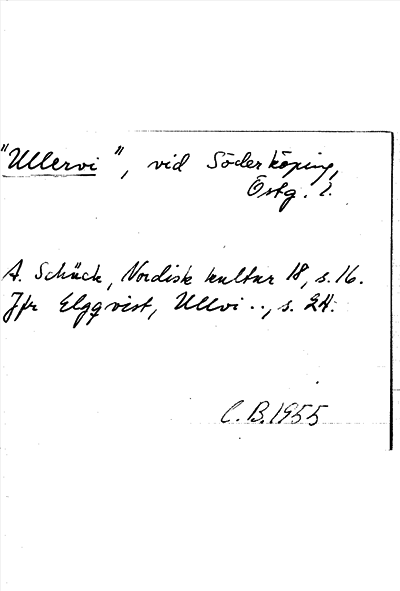 "Ullervi", vid Söderköping,
Östg. l.
A. Schück, Nordisk kultur 18, s. 16.
Jfr Elgqvist, Ullvi .., s. 24.
C. B. 1955